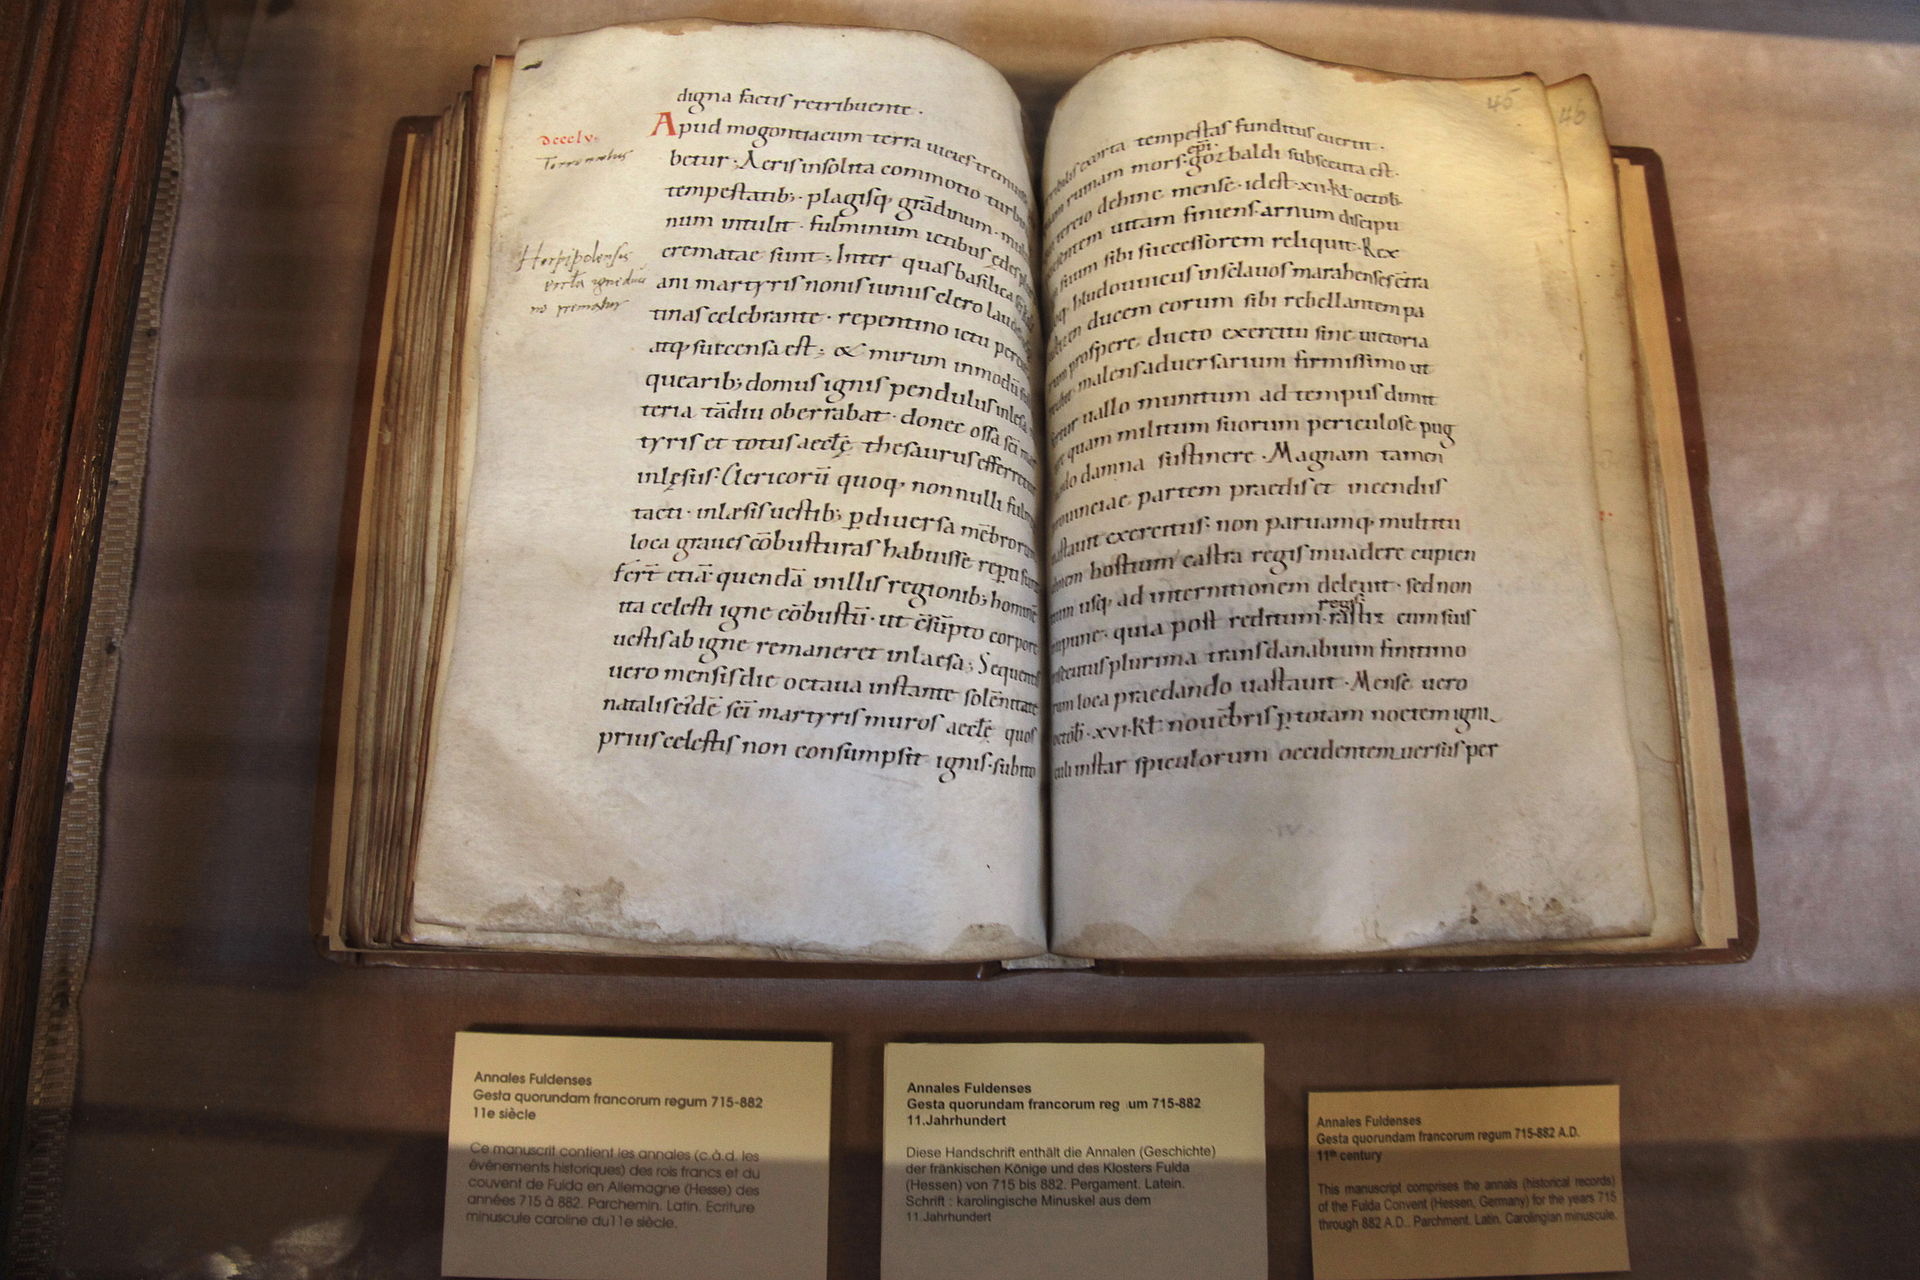 digna factis retribuente ·
dccclv
Apud mogontiacum terra uicies tremuisse
betur · Aeris insolita commotio turbi
tempestatib; · plagisq, grādinum · mul
num intulit · fulminum ictibus ędes
Herpipolenses
crematae sunt ; Inter quas basilica
ani martyris nonis iunii clero laudes
tinas celebrante · repentino ictu
atq, succensa est ; & mirum inmodū
quearib; domus ignis pendulus inlesa
teria tādiu oberrabat · donec ossa scī mar
tyris et totus aecłę thesaurus efferretur
inlęsus · Clericorū quoq, nonnulli
tacti · inlaesis uestib; p diuersa mēbrorum
loca graues cōbusturas habuisse
fert̄ etiā quendā in illis regionib; hominē
ita celesti igne cōbustū · ut
uestis ab igne remaneret inlaesa ; Sequentis
uero mensis die octaua instante solēnitate
natalis eidē scī martyris muros aecłę quos
prius celestis non consumpsit ignis · subito
45
46
exorta tempestas funditus euertit ·
epi
ruinam mors · gozbaldi subsecuta est ·
tercio dehinc mense · id est · xii · kł octob̄
uitam finiens · arnum discipu
suum sibi successorem reliquit · Rex
hludouuicus in sclauos marahenses c̄tra
ducem eorum sibi rebellantem pa
rum prospere ducto exercitu sine uictoria
malens aduersarium firmissimo ut
uallo munitum ad tempus dimit
quam militum suorum periculose pug
damna sustinere · Magnam tamen
prouinciae partem praedis et incendiis
uastauit exercitus · non paruamq, multitu
hostium castra regis inuadere cupien
usq, ad internitionem deleuit · sed non
regis
inpune · quia post reditum · rastiz cum suis
insecutus plurima trans danabium finitimo
rum loca praedando uastauit · Mense uero
octob̄ · xvi · kł nouēbris p totam noctem igni
culi instar spiculorum occidentem uersus per
Annales Fuldenses
Gesta quorundam francorum regum 715-882
11e siècle
Ce manuscrit contient les annales (c.à.d. les
événements historiques) des rois francs et du
couvent de Fulda en Allemagne (Hesse) des
années 715 à 882. Parchemin. Latin. Ecriture
minuscule caroline du11e siècle.
Annales Fuldenses
Gesta quorundam francorum reg um 715-882
11.Jahrhundert
Diese Handschrift enthält die Annalen (Geschichte)
der fränkischen Könige und des Klosters Fulda
(Hessen) von 715 bis 882. Pergament. Latein.
Schrift : karolingische Minuskel aus dem
11.Jahrhundert
Annales Fuldenses
Gesta quorundam francorum regum 715-882 A.D.
11th century
This manuscript comprises the annals (historical records)
of the Fulda Convent (Hessen, Germany) for the years 715
through 882 A.D.. Parchment. Latin. Carolingian minuscule.